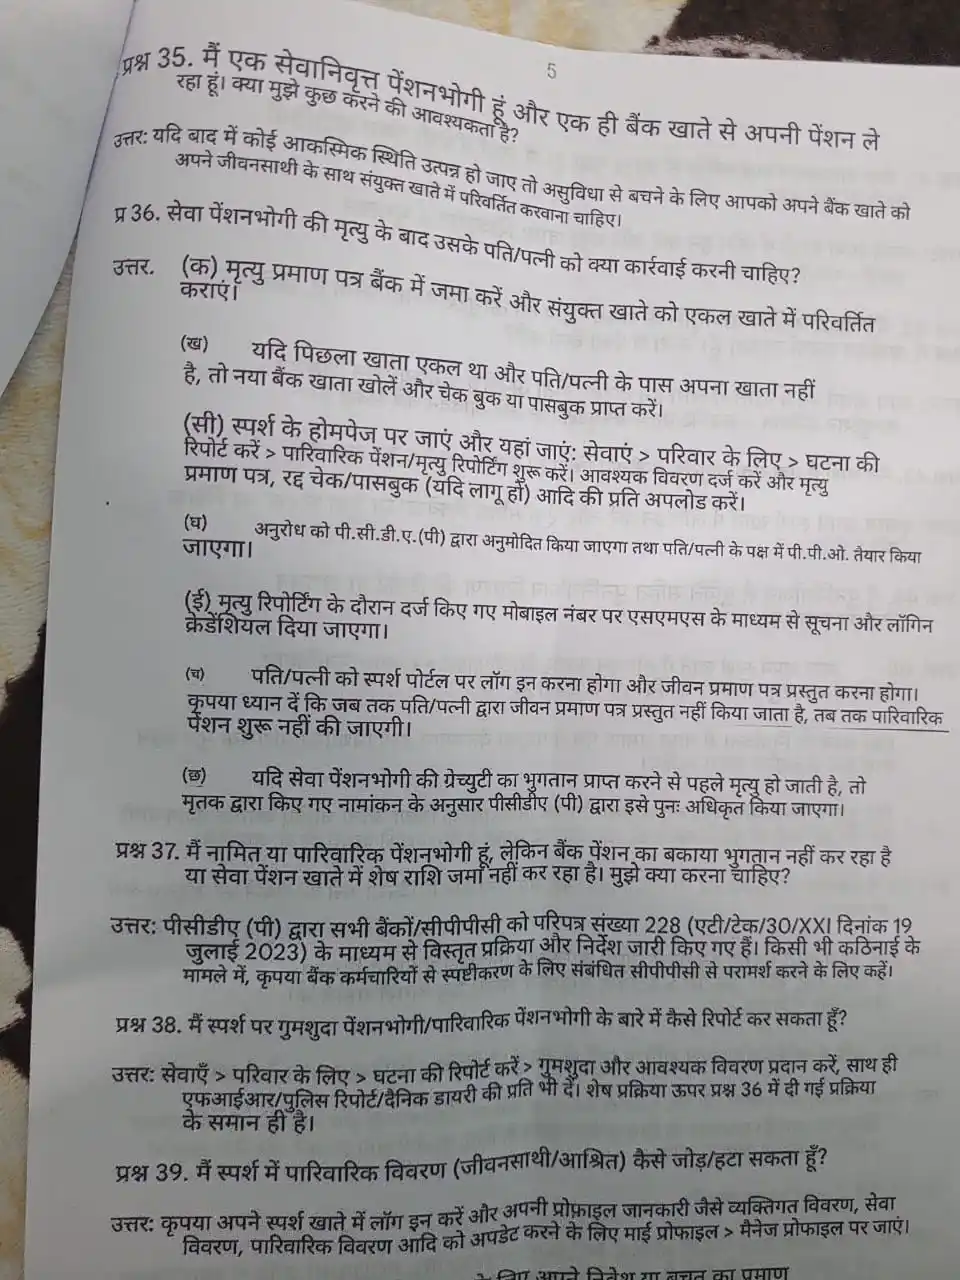 5
प्रश्न 35. मैं एक सेवानिवृत्त पेंशनभोगी हूं और एक ही बैंक खाते से अपनी पेंशन ले
रहा हूं। क्या मुझे कुछ करने की आवश्यकता है?
उत्तर: यदि बाद में कोई आकस्मिक स्थिति उत्पन्न हो जाए तो असुविधा से बचने के लिए आपको अपने बैंक खाते को
अपने जीवनसाथी के साथ संयुक्त खाते में परिवर्तित करवाना चाहिए।
प्र 36. सेवा पेंशनभोगी की मृत्यु के बाद उसके पति/पत्नी को क्या कार्रवाई करनी चाहिए?
उत्तर. (क) मृत्यु प्रमाण पत्र बैंक में जमा करें और संयुक्त खाते को एकल खाते में परिवर्तित
कराएं।
(ख) यदि पिछला खाता एकल था और पति/पत्नी के पास अपना खाता नहीं
है, तो नया बैंक खाता खोलें और चेक बुक या पासबुक प्राप्त करें।
(सी) स्पर्श के होमपेज पर जाएं और यहां जाएं: सेवाएं > परिवार के लिए > घटना की
रिपोर्ट करें > पारिवारिक पेंशन/मृत्यु रिपोर्टिंग शुरू करें। आवश्यक विवरण दर्ज करें और मृत्यु
प्रमाण पत्र, रद्द चेक/पासबुक (यदि लागू हो) आदि की प्रति अपलोड करें।
(घ) अनुरोध को पी.सी.डी.ए.(पी) द्वारा अनुमोदित किया जाएगा तथा पति/पत्नी के पक्ष में पी.पी.ओ. तैयार किया
जाएगा।
(ई) मृत्यु रिपोर्टिंग के दौरान दर्ज किए गए मोबाइल नंबर पर एसएमएस के माध्यम से सूचना और लॉगिन
क्रेडेंशियल दिया जाएगा।
(च) पति/पत्नी को स्पर्श पोर्टल पर लॉग इन करना होगा और जीवन प्रमाण पत्र प्रस्तुत करना होगा।
कृपया ध्यान दें कि जब तक पति/पत्नी द्वारा जीवन प्रमाण पत्र प्रस्तुत नहीं किया जाता है, तब तक पारिवारिक
पेंशन शुरू नहीं की जाएगी।
(छ) यदि सेवा पेंशनभोगी की ग्रेच्युटी का भुगतान प्राप्त करने से पहले मृत्यु हो जाती है, तो
मृतक द्वारा किए गए नामांकन के अनुसार पीसीडीए (पी) द्वारा इसे पुनः अधिकृत किया जाएगा।
प्रश्न 37. मैं नामित या पारिवारिक पेंशनभोगी हूं, लेकिन बैंक पेंशन का बकाया भुगतान नहीं कर रहा है
या सेवा पेंशन खाते में शेष राशि जमा नहीं कर रहा है। मुझे क्या करना चाहिए?
उत्तर: पीसीडीए (पी) द्वारा सभी बैंकों/सीपीपीसी को परिपत्र संख्या 228 (एटी/टेक/30/XXI दिनांक 19
जुलाई 2023) के माध्यम से विस्तृत प्रक्रिया और निर्देश जारी किए गए हैं। किसी भी कठिनाई के
मामले में, कृपया बैंक कर्मचारियों से स्पष्टीकरण के लिए संबंधित सीपीपीसी से परामर्श करने के लिए कहें।
प्रश्न 38. मैं स्पर्श पर गुमशुदा पेंशनभोगी/पारिवारिक पेंशनभोगी के बारे में कैसे रिपोर्ट कर सकता हूँ?
उत्तर: सेवाएँ > परिवार के लिए > घटना की रिपोर्ट करें > गुमशुदा और आवश्यक विवरण प्रदान करें, साथ ही
एफआईआर/पुलिस रिपोर्ट/दैनिक डायरी की प्रति भी दें। शेष प्रक्रिया ऊपर प्रश्न 36 में दी गई प्रक्रिया
के समान ही है।
प्रश्न 39. मैं स्पर्श में पारिवारिक विवरण (जीवनसाथी/आश्रित) कैसे जोड़/हटा सकता हूँ?
उत्तर: कृपया अपने स्पर्श खाते में लॉग इन करें और अपनी प्रोफ़ाइल जानकारी जैसे व्यक्तिगत विवरण, सेवा
विवरण, पारिवारिक विवरण आदि को अपडेट करने के लिए माई प्रोफाइल > मैनेज प्रोफाइल पर जाएं।
के लिए अपने निवेश या बचत का प्रमाण